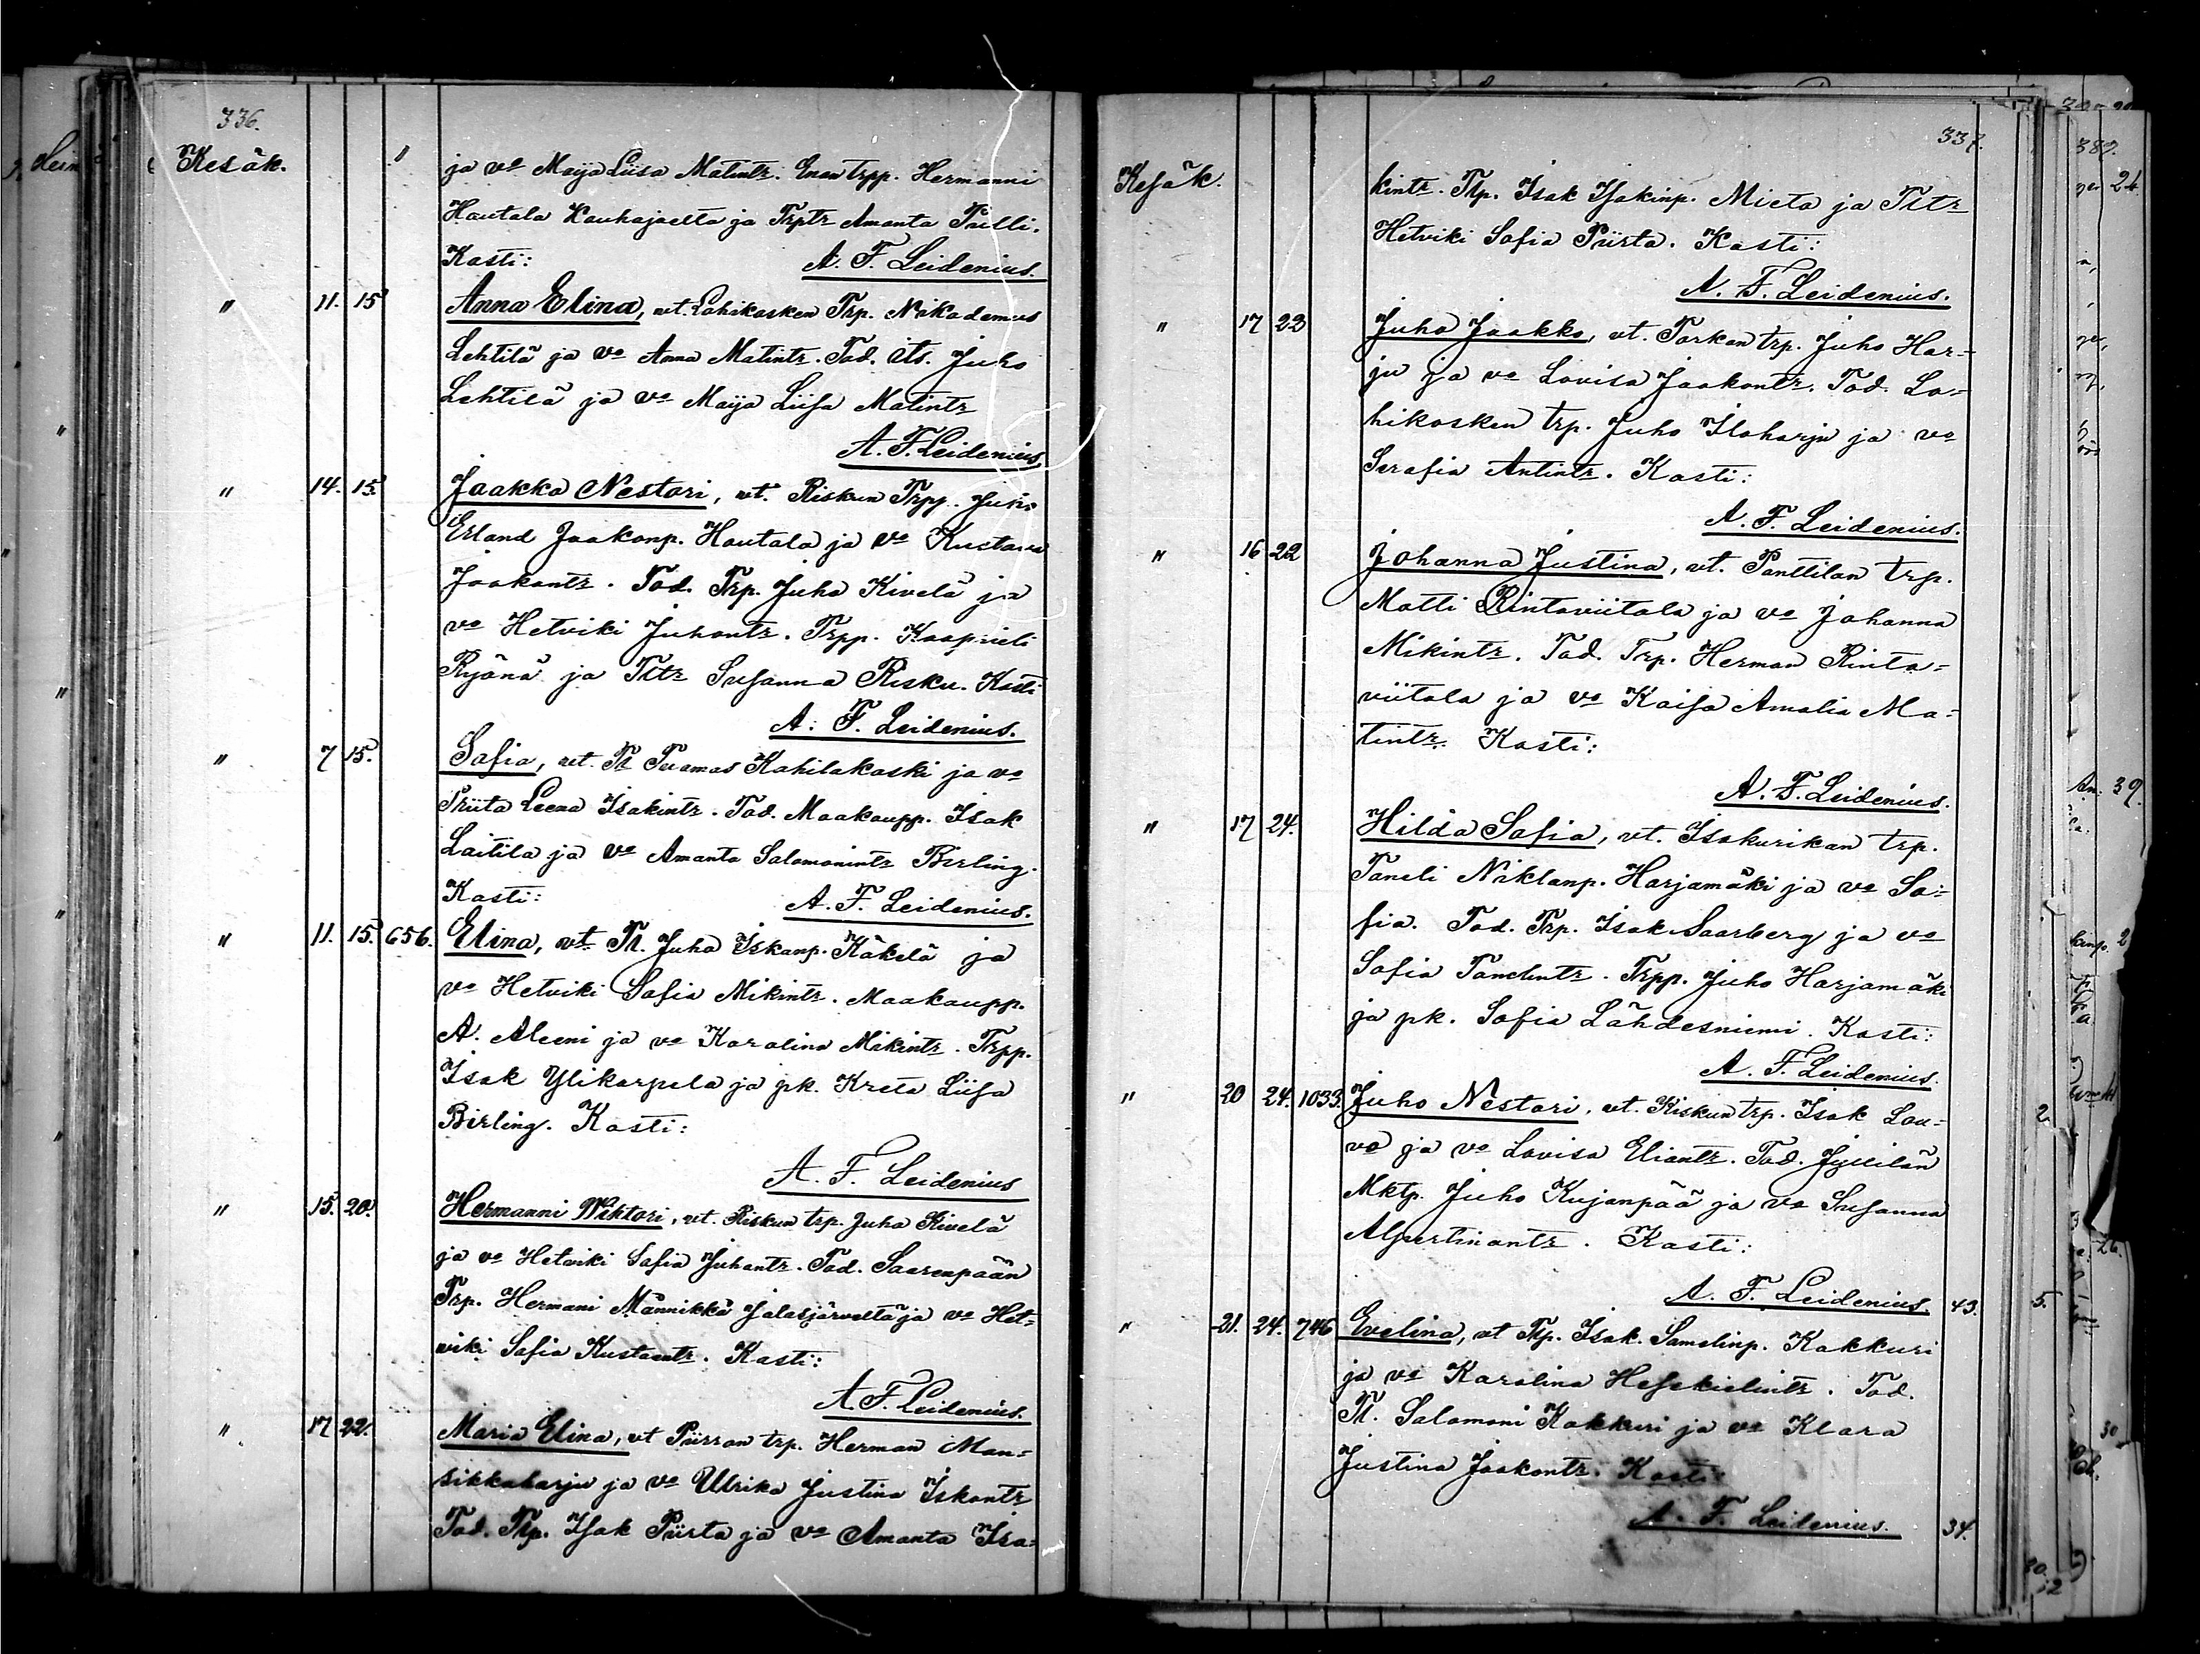 336.
Kesäk. ja vo Maija Liisa Matintr. Enon trpp. Hermanni
Hautala Kauhajoelta ja Trptr Amanta Pulli.
Kasti: A. F. Leidenius.
" 11. 15 Anna Elina, vt. Lohikosken Trp. Nikodemus
Lehtilä ja vo Anna Matintr. Tod. its. Juho
Lehtilä ja vo Maija Liisa Matintr
A. F. Leidenius
" 14. 15. Jaakko Nestori, vt. Riskun Trpp. Juho
Erland Jaakonp. Hautala ja vo Kustava
Jaakontr. Tod. Trp. Juho Kivelä ja
vo Hetviki Juhontr. Trpp. Kaaprieli
Ryönä ja Tltr Susanna Risku. Kasti
A. F. Leidenius.
" 7 15. Safia, vt. Tl Tuomas Kahilakoski ja vo
Priita Leena Isakintr. Tod. Maakaupp. Isak
Laitila ja vo Amanta Salomonintr Birling.
Kasti: A. F. Leidenius.
" 11. 15. 656. Elina, vt. Tl. Juho Iskanp. Käkelä ja
vo Hetviki Safia Mikintr. Maakaupp.
A. Aleeni ja vo Karolina Mikintr. Trpp.
Isak Ylikarpela ja pk. Kreta Liisa
Birling. Kasti:
A. F. Leidenius
" 15. 20. Hermanni Wiktori, vt. Riskun trp. Juha Kivelä
ja vo Hetviki Safia Juhantr. Tod. Saarenpään
Trp. Hermani Männikkö Jalasjärveltä ja vo Het=
viki Safia Kustaantr. Kasti:
A. F. Leidenius.
" 17 22. Maria Elina, vt Piirron trp. Herman Man=
sikkaharju ja vo Ulrika Justina Iskantr
Tod. Tlp. Isak Piirta ja vo Amanta Isa=
337.
Kesäk. kintr. Tlp. Isak Isakinp. Mieta ja Tltr
Hetviki Sofia Piirta. Kasti:
A. F. Leidenius.
" 17 23 Juho Jaakko, vt. Torkon trp. Juho Har=
ju ja vo Lovisa Jaakontr. Tod. Lo=
hikosken trp. Juho Iloharju ja vo
Serafia Antintr. Kasti:
A. F. Leidenius.
" 16 22 Johanna Justina, vt. Panttilan trp.
Matti Rintaviitala ja vo Johanna
Mikintr. Tod. Trp. Herman Rinta=
viitala ja vo Kaisa Amalia Ma=
tintr. Kasti:
A. F. Leidenius.
" 17 24. Hilda Safia, vt. Isokurikan trp.
Taneli Niklanp. Harjamäki ja vo So=
fia. Tod. Trp. Isak Saarberg ja vo
Sofia Tanelintr. Trpp. Juho Harjamäki
ja pk. Sofia Lähdesniemi. Kasti:
A. F. Leidenius.
" 20 24. 1033. Juho Nestori, vt. Riskun trp. Isak Lou=
va ja vo Lovisa Eliantr. Tod. Jyllilän
Mktp. Juho Kujanpää ja vo Susanna
Alpertinantr. Kasti:
A. F. Leidenius. 43.
" 21. 24. 746 Evelina, vt Tlp. Isak Samelinp. Kakkuri
ja vo Karolina Hesekielintr. Tod.
Tl. Salomoni Kakkuri ja vo Klara
Justina Jaakontr. Kasti:
A. F. Leidenius. 34.